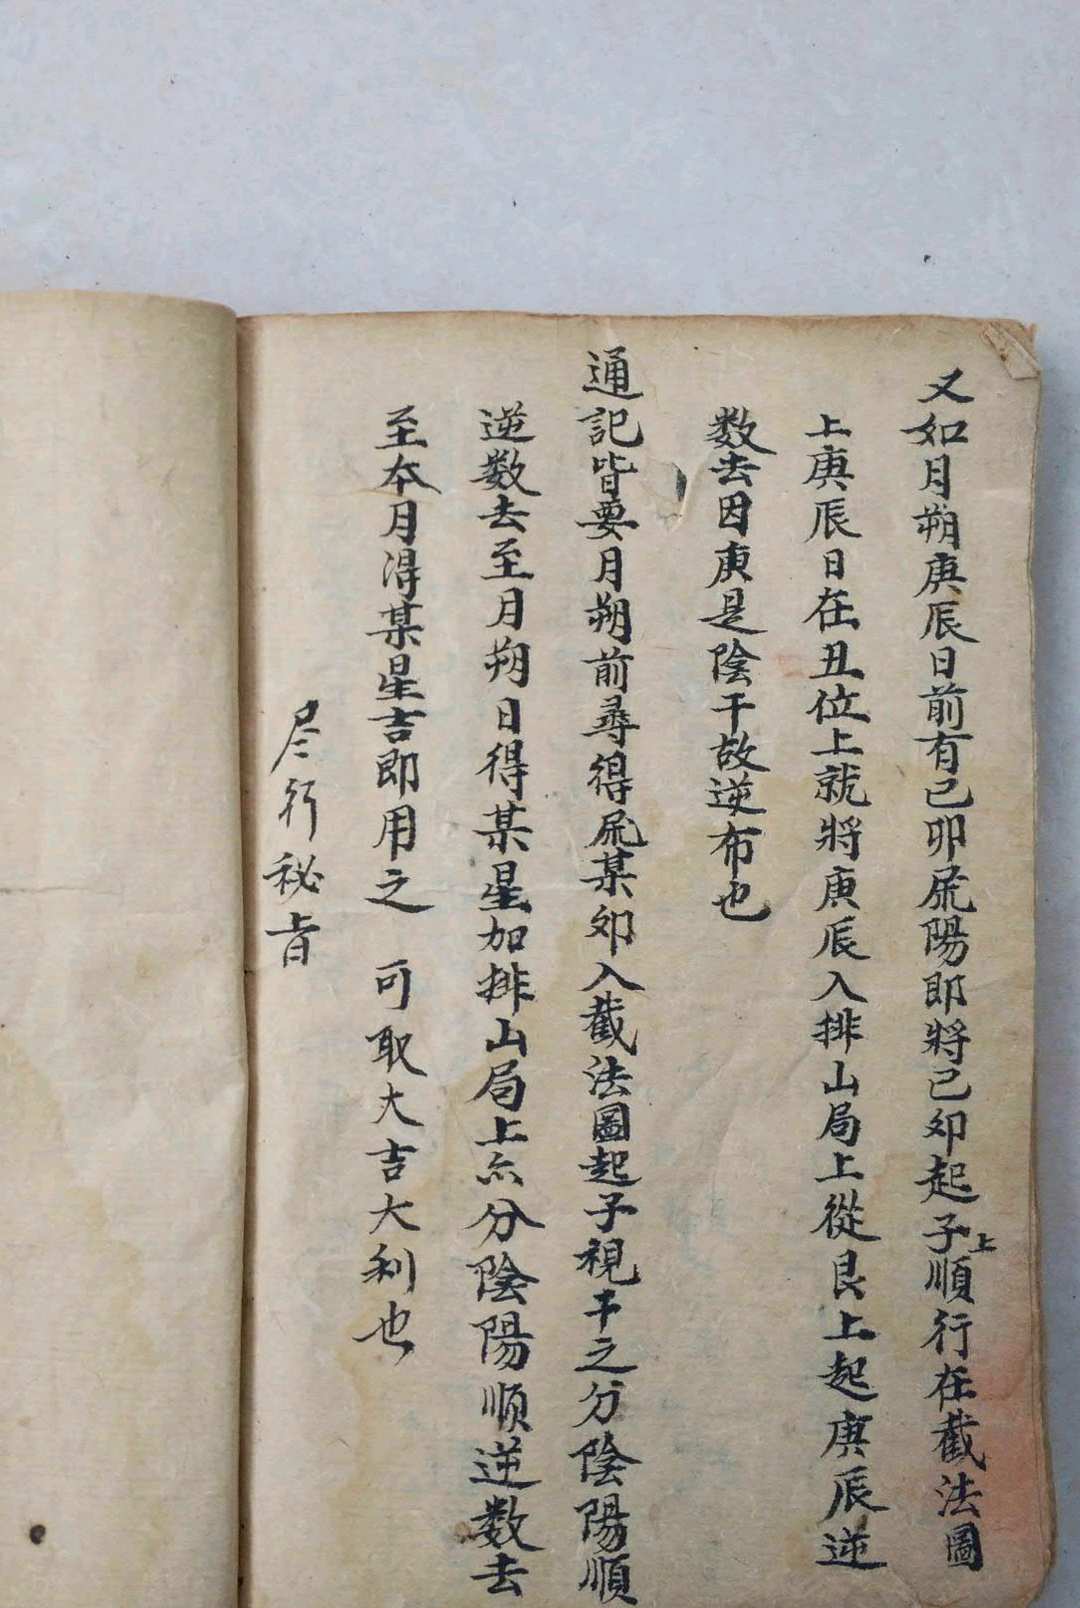 又如月朔庚辰日前有己卯屍陽即將己卯起子上順行在截法圖
上庚辰日在丑位上就將庚辰入排山局上從艮上起庚辰逆
数去因庚是陰干故逆布也
通記皆要月朔前尋得屍某卯入截法圖起子視干之分陰陽順
逆数去至月朔日得某星加排山局上亦分陰陽顺逆数去
至本月淂某星吉即用之 可取大吉大利也
尽行秘旨